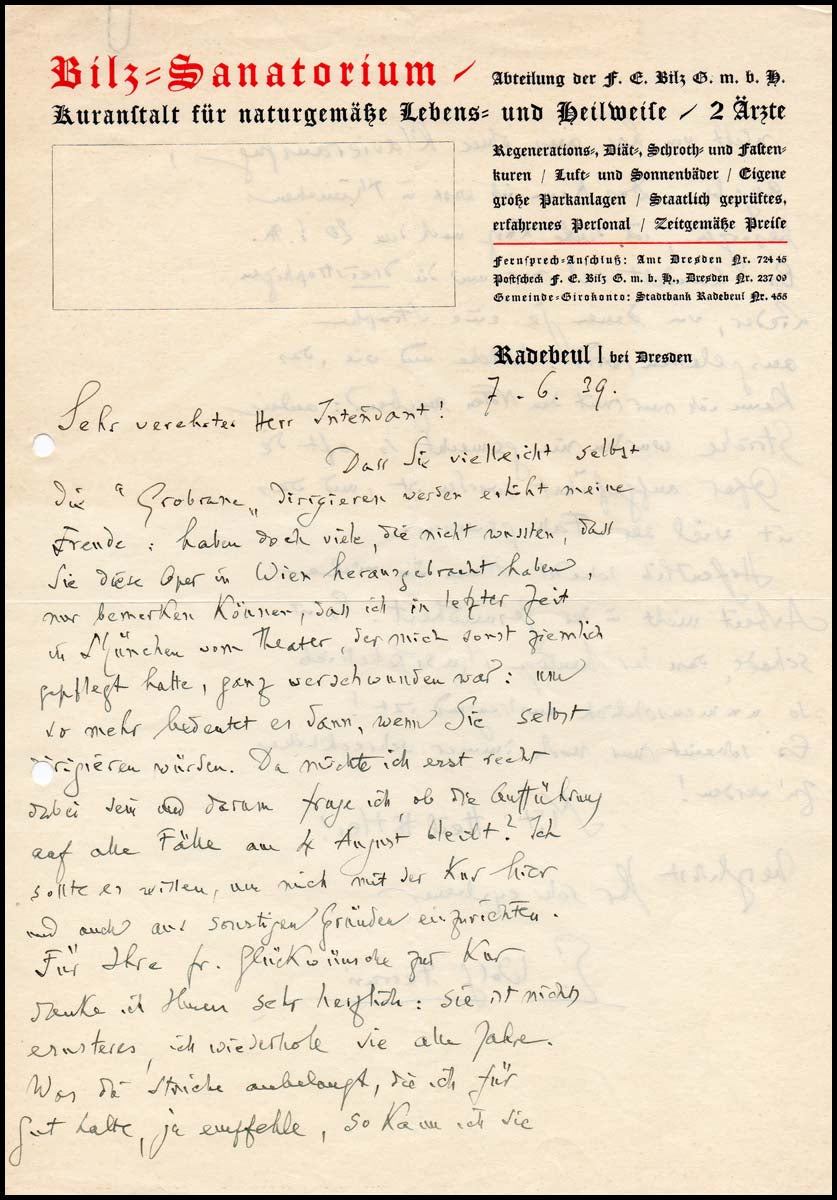 Bilz=Sanatorium /
Abteilung der F. E. Bilz G. m. b. H.
Kuranstalt für naturgemäße Lebens= und Heilweise / 2 Ärzte
Regenerations=, Diät=, Schroth= und Fasten=
kuren / Luft= und Sonnenbäder / Eigene
große Parkanlagen / Staatlich geprüftes,
erfahrenes Personal / Zeitgemäße Preise
Fernsprech=Anschluß: Amt Dresden Nr. 724 45
Postscheck F. E. Bilz G. m. b. H., Dresden Nr. 237 09
Gemeinde=Girokonto: Stadtbank Radebeul Nr. 455
Radebeul I bei Dresden
7. 6. 39.
Sehr verehrter Herr Intendant!
Dass Sie vielleicht selbst
die " dirigieren werden erhöht meine
Freude: haben doch viele, die nicht wussten, dass
Sie diese Oper in Wien herausgebracht haben,
nur bemerken können, dass ich in letzter Zeit
in München vom Theater, der mich sonst ziemlich
gepflegt hatte, ganz verschwunden war: um
so mehr bedeutet es dann, wenn Sie selbst
dirigieren würden. Da möchte ich erst recht
dabei sein und darum frage ich, ob die Aufführung
auf alle Fälle am 4 August bleibt? Ich
sollte es wissen, um mich mit der Kur hier
und auch aus sonstigen Gründen einzurichten.
Für Ihre fr. Glückwünsche zur Kur
danke ich Ihnen sehr herzlich: sie ist nichts
ernsteres, ich wiederhole sie alle Jahre.
Was die Striche anbelangt, die ich für
gut halte, ja empfehle, so kann ich sie